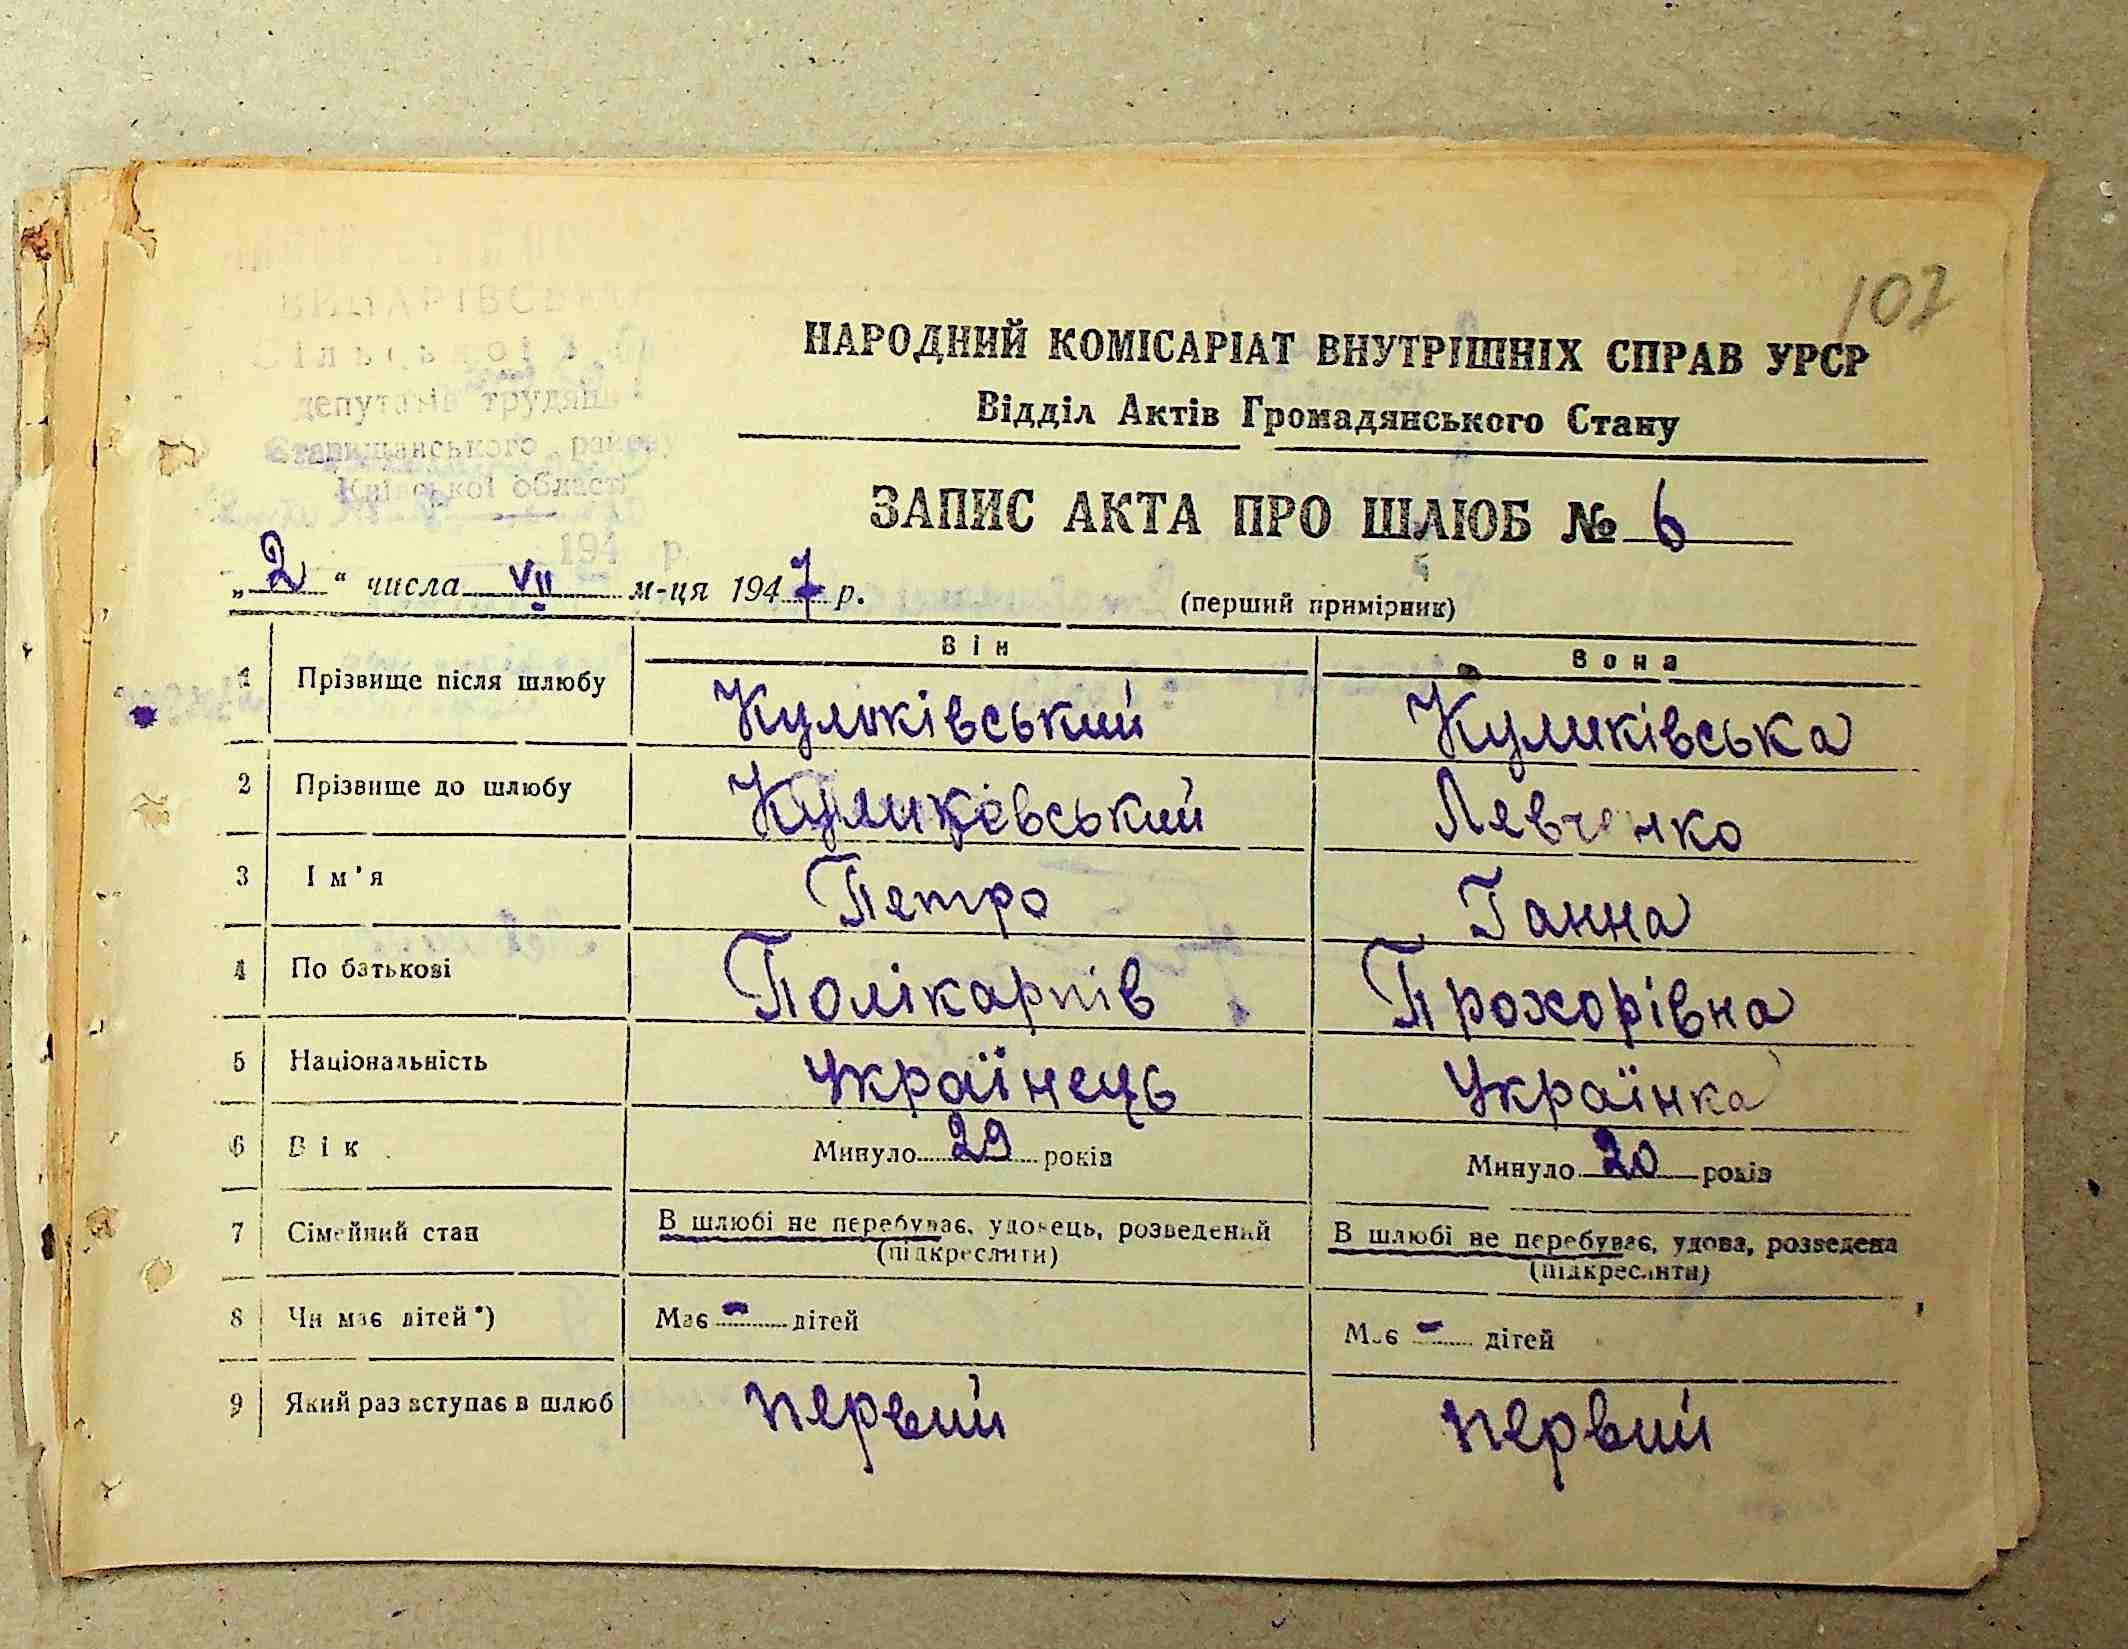 107
НАРОДНИЙ КОМІСАРІАТ ВНУТРІШНІХ СПРАВ УРСР
Відділ Актів Громадянського Стану
ЗАПИС АКТА ПРО ШЛЮБ № 6
депутатів трудящ
Київської області
194 р.
„2“ числа VII м-ця 1947 р.
(перший примірник)
Він Вона
1 Прізвище після шлюбу Куликівський Куликівська
2 Прізвище до шлюбу Куликівський Левченко
3 Ім'я Петро Ганна
4 По батькові Полікарпів Прохорівна
5 Національність Українець Українка
6 Вік Минуло 29 років Минуло 20 років
7 Сімейний стан В шлюбі не перебуває, удовець, розведений В шлюбі не перебуває, удова, розведена
(підкреслити) (підкреслити)
8 Чи має дітей*) Має - дітей Має - дітей
9 Який раз вступає в шлюб первий первий